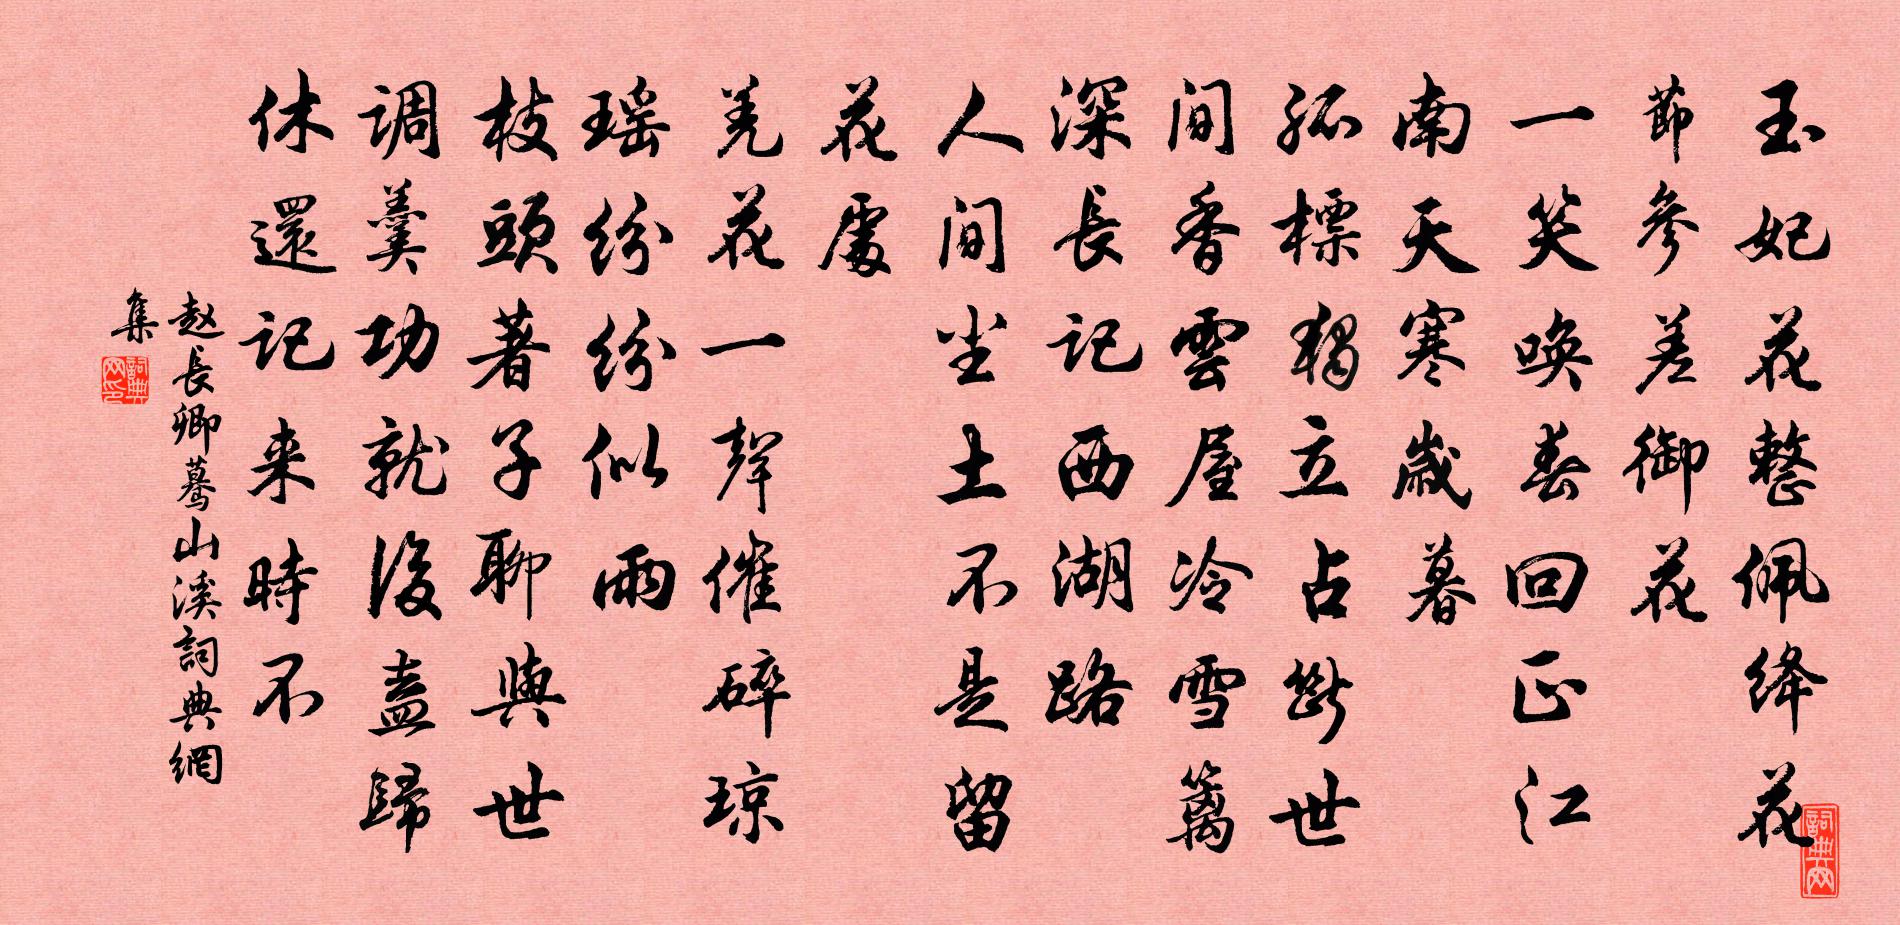 玉妃花整佩绛花
節參差御花
一笑唤春回正江
南天寒歲暮
孤標獨立占斷世
间香雲屋冷雪篱
深長记西湖路
人间尘土不是留
花處
羌花一聲催碎琼
瑶纷纷似雨
枝頭著子聊與世
调羹功就後盍歸
休還记来時不
赵長卿驀山溪詞典網
集
詞典网印
詞典网